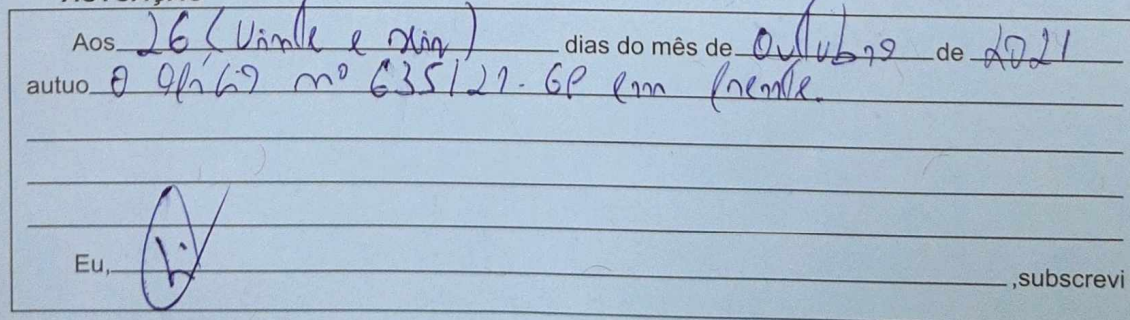 Aos 26 (vinte e seis) dias do mês de Outubro de 2021
autuo o ofício nº 635/21-GP em frente.
Eu, ,subscrevi